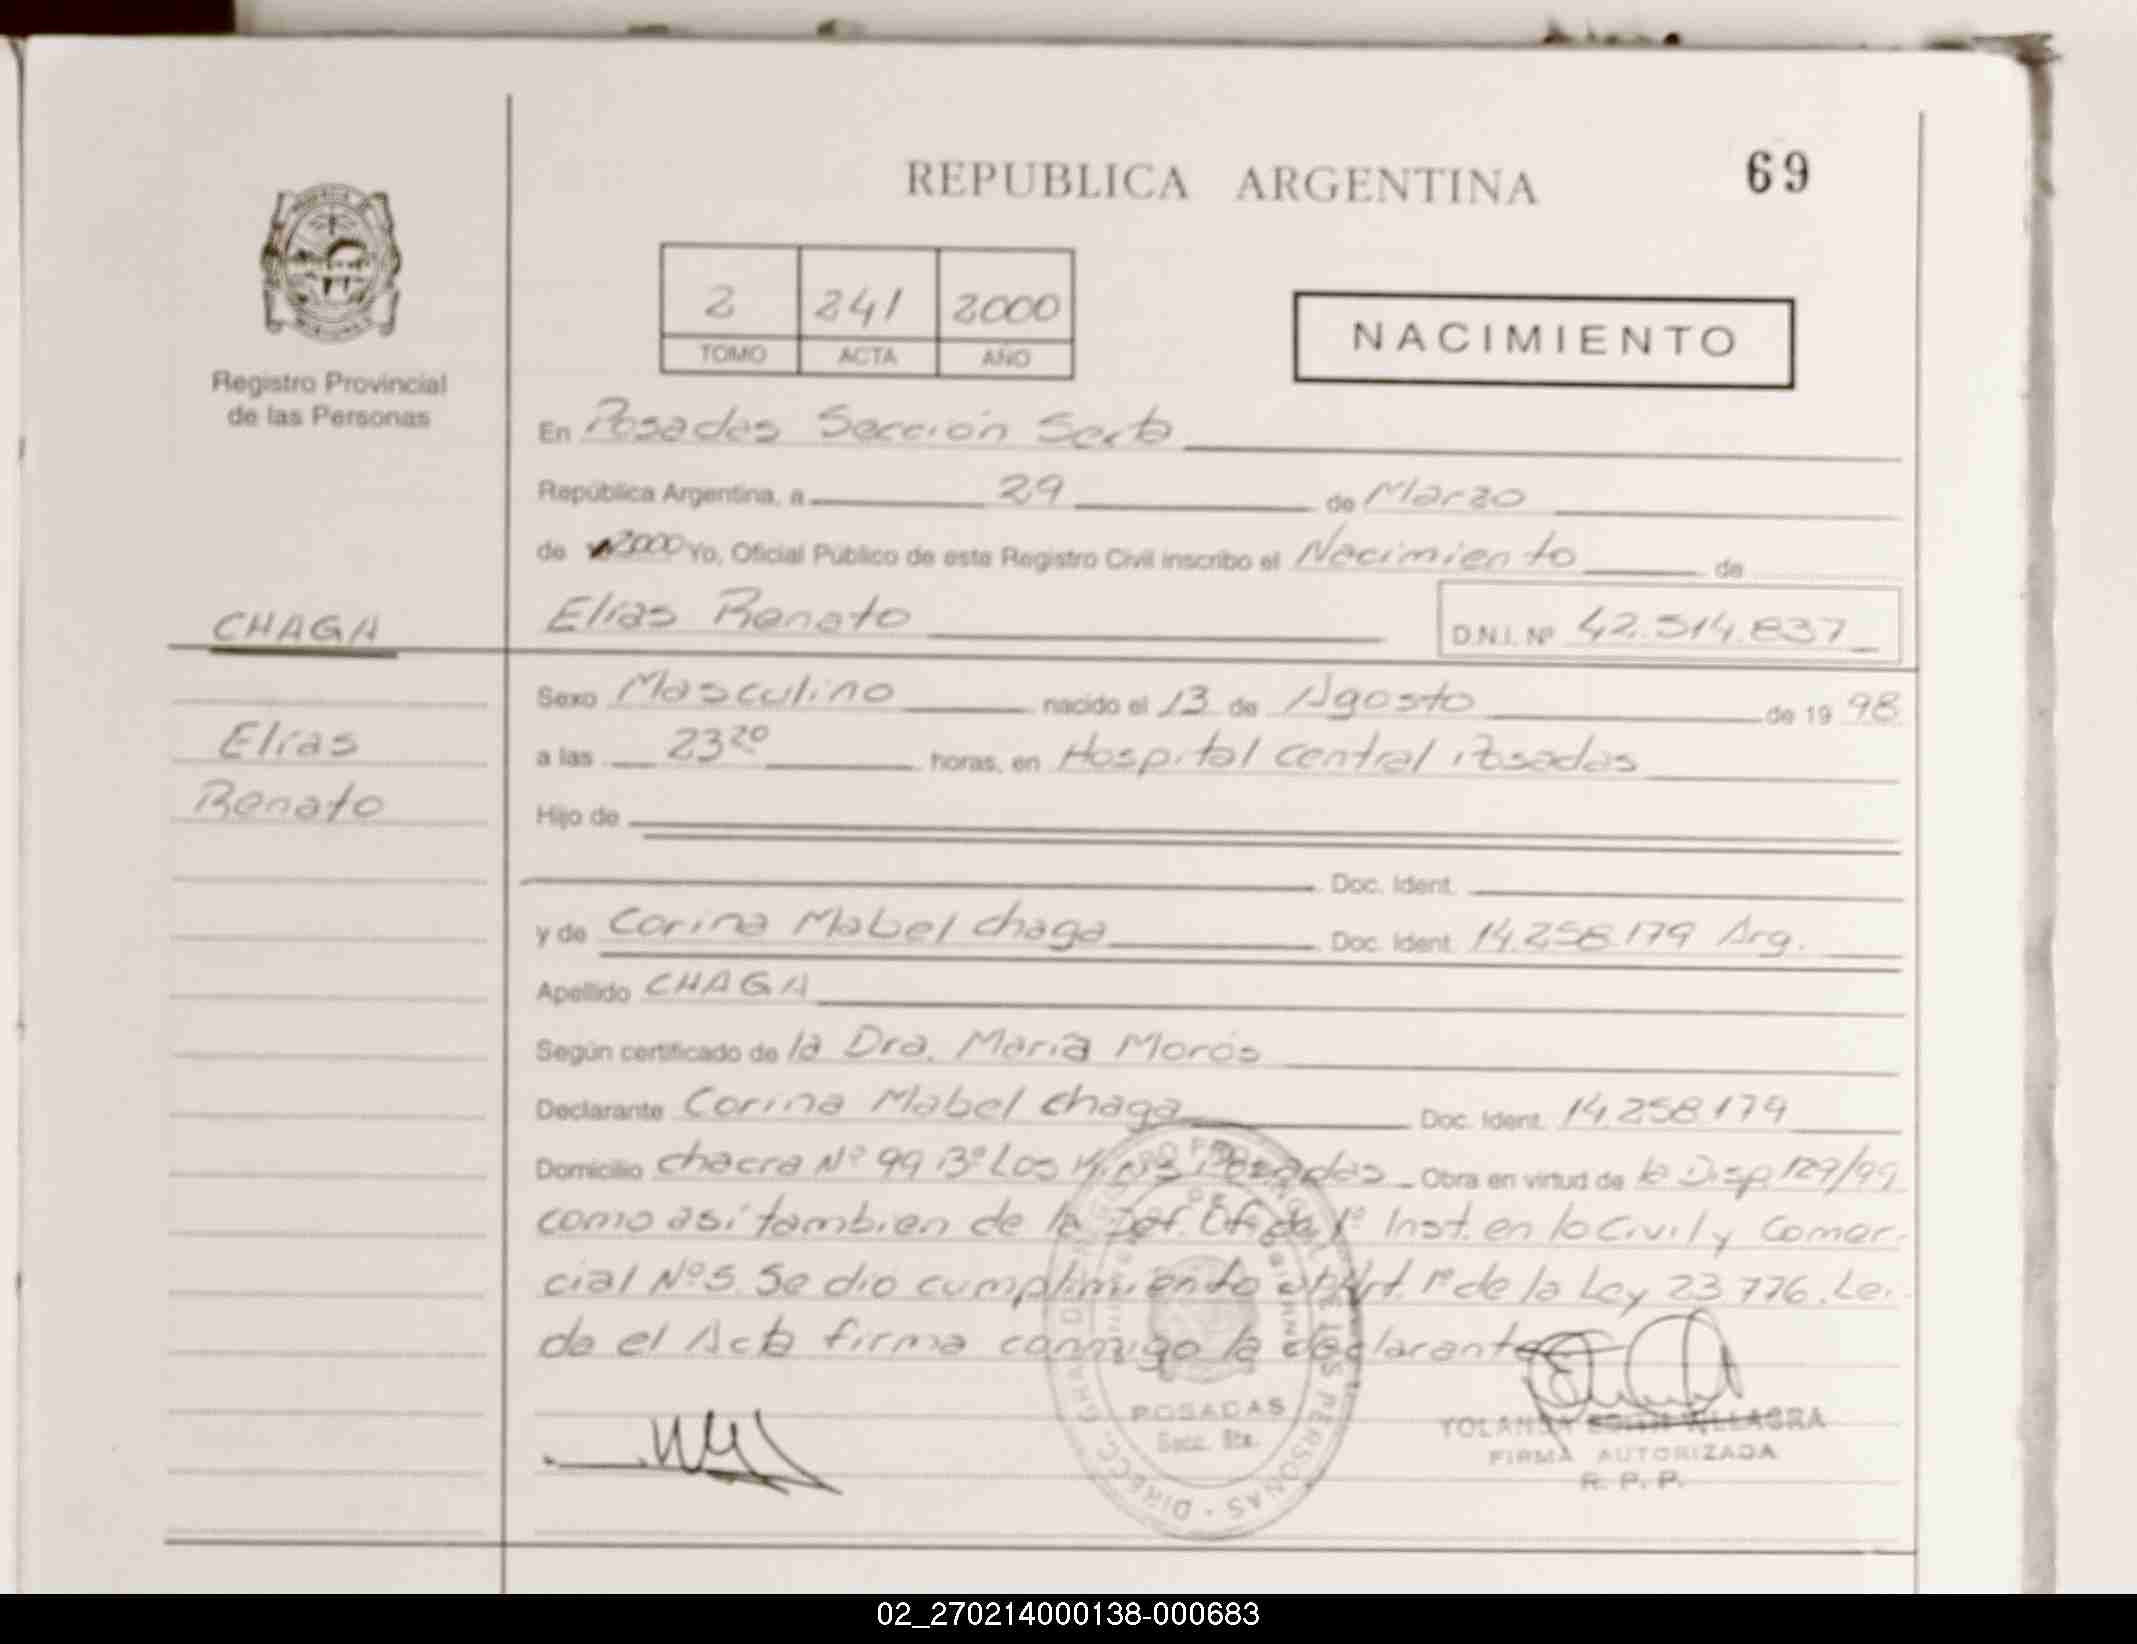 REPUBLICA ARGENTINA
69
2 241 2000
TOMO ACTA AÑO
NACIMIENTO
Registro Provincial
de las Personas
En Posadas Sección Sexta
República Argentina, a 29 de Marzo
de 2000 Yo, Oficial Público de este Registro Civil inscribo el Nacimiento de
CHAGA
Elias Renato D.N.I. Nº 42.514.837
Sexo Masculino nacido el 13 de Agosto de 19 98
Elias
a las 23 20 horas, en Hospital Central Posadas
Renato
Hijo de
Doc. Ident.
y de Corina Mabel Chaga Doc. Ident. 14.258.179 Arg.
Apellido CHAGA
Según certificado de la Dra. María Morós
Declarante Corina Mabel Chaga Doc. Ident. 14.258.179
Domicilio chacra Nº 99 Bº Los Posadas Obra en virtud de la Disp. 129/99
como así tambien de la Def. Of. de 1º Inst. en lo Civil y Comer-
cial Nº 5. Se dio cumplimiento al Art. 1º de la Ley 23.776. Lei-
da el Acta firma conmigo la declarante
POSADAS
Secc. 6ta.
YOLANDA EDITH VILLAGRA
FIRMA AUTORIZADA
R. P. P.
02_270214000138-000683